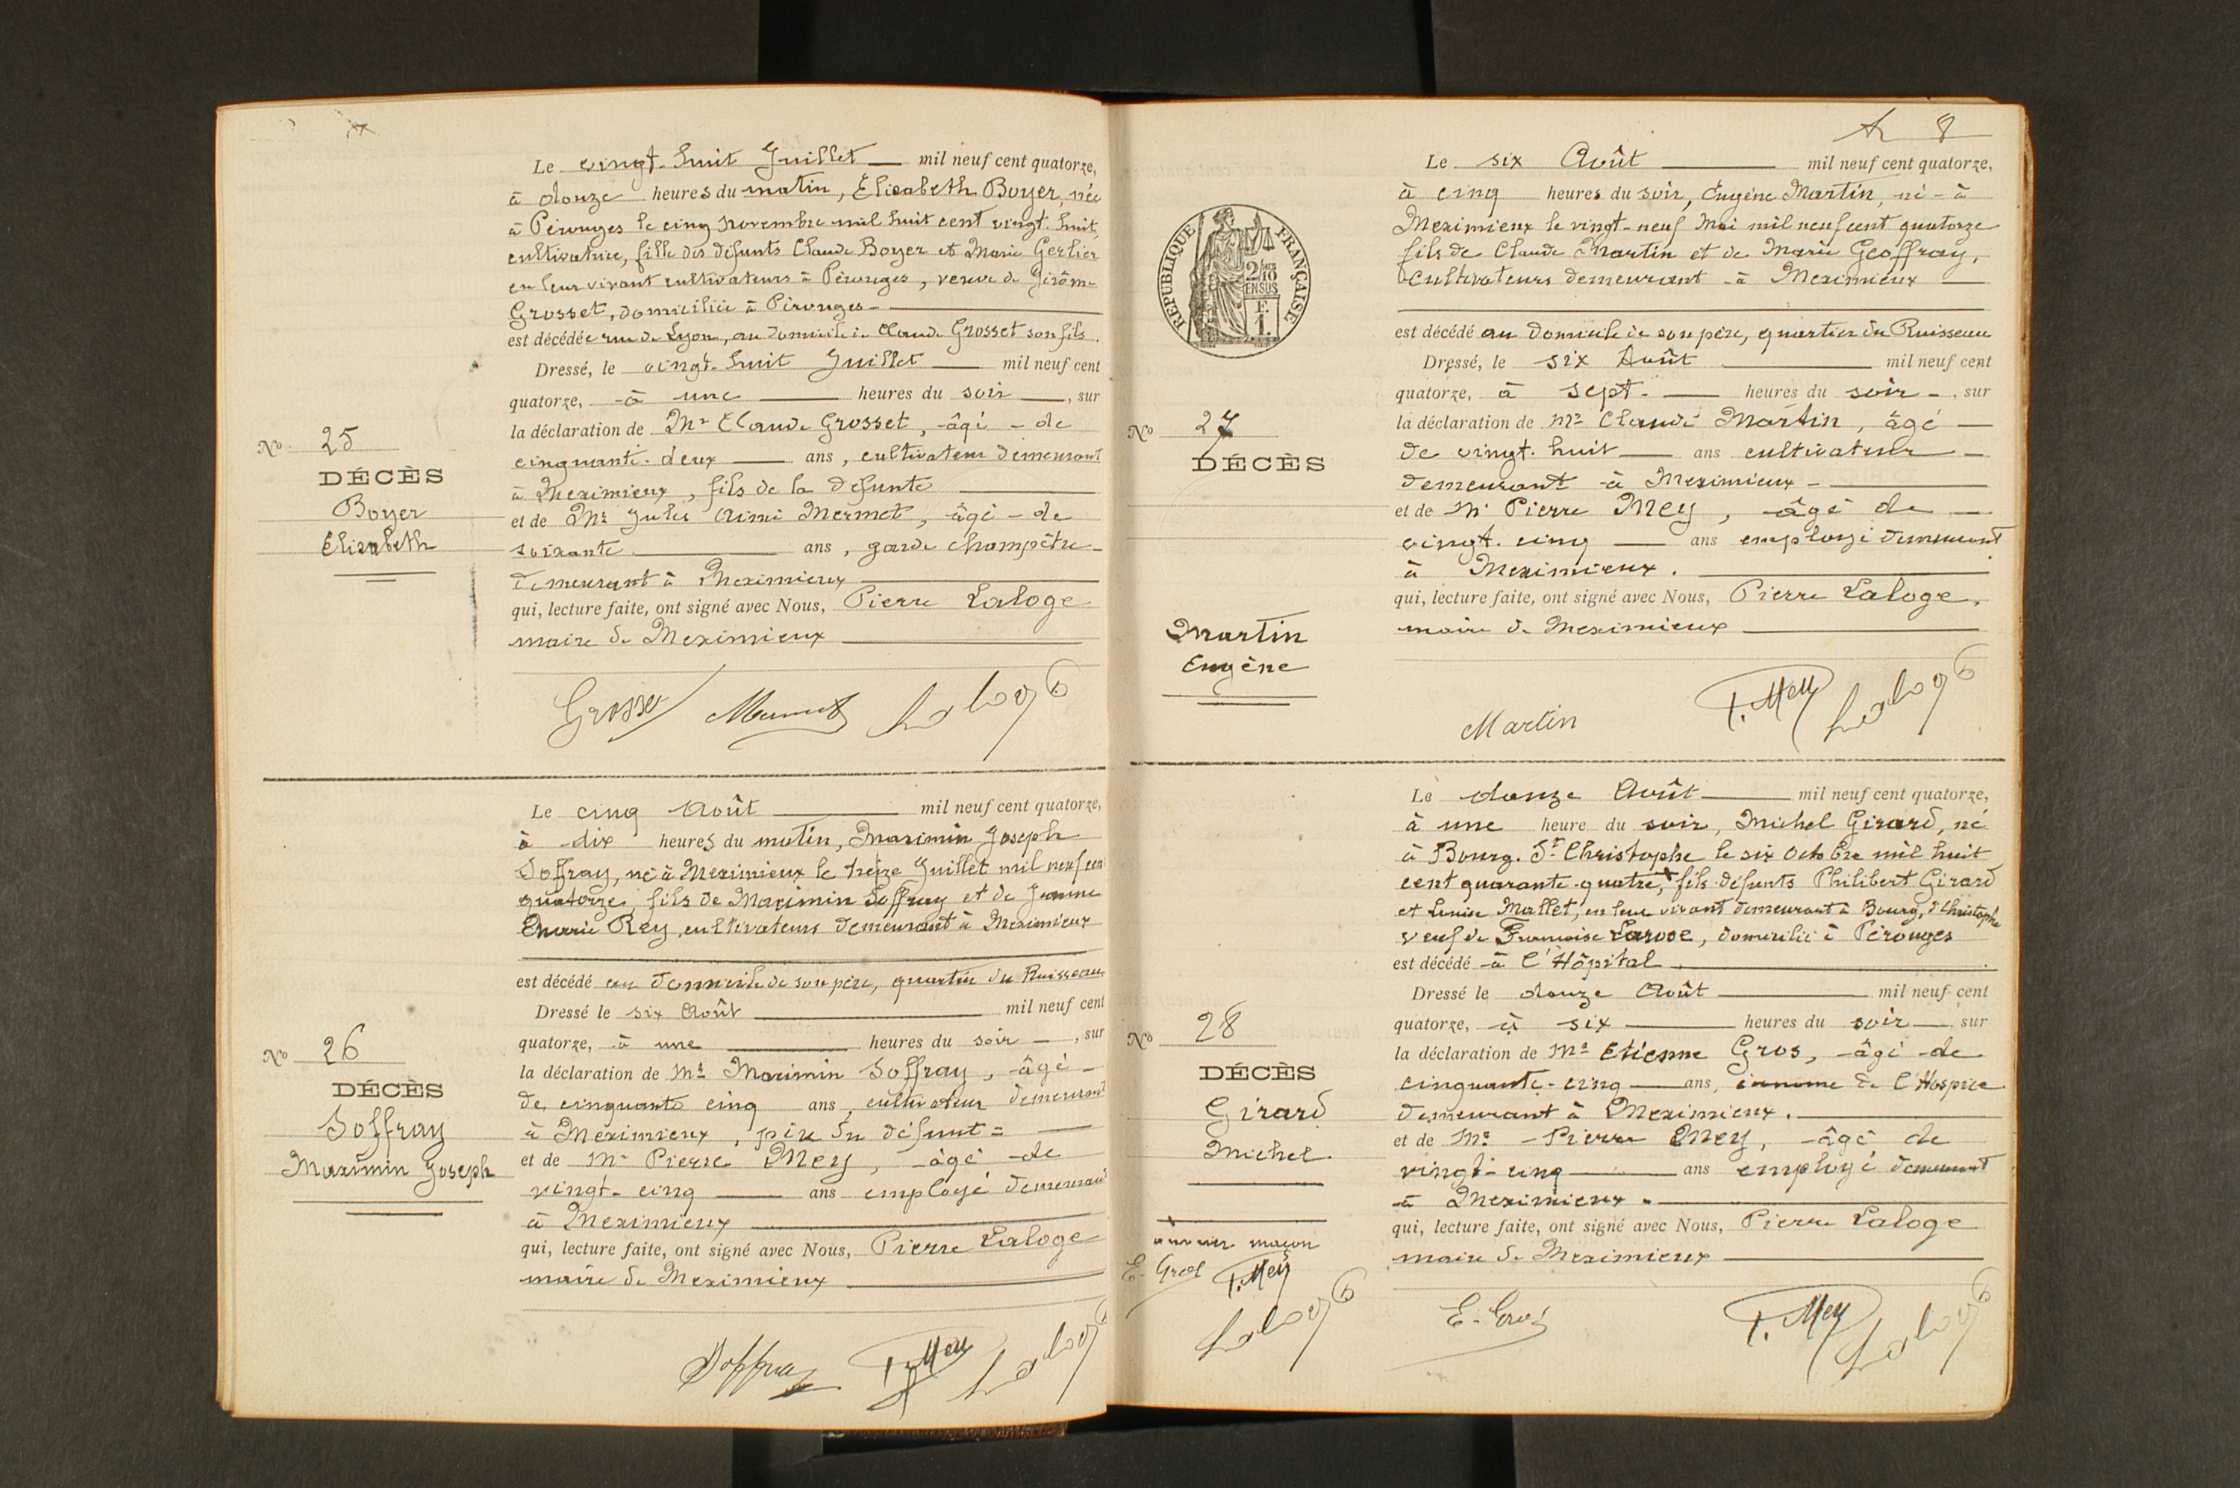 Le vingt-huit Juillet — mil neuf cent quatorze,
à douze heures du matin, Élisabeth Boyer, née
à Pérouges le cinq novembre mil huit cent vingt-huit,
cultivatrice, fille des défunts Claude Boyer et Marie Gerlier
en leur vivant cultivateurs à Pérouges, veuve de Jérôme
Grosset, domiciliée à Pérouges —
est décédée rue de Lyon, au domicile de Claude Grosset son fils.
Dressé, le vingt-huit Juillet — mil neuf cent
quatorze, à une — heures du soir —, sur
la déclaration de Mr Claude Grosset, âgé de
cinquante-deux — ans, cultivateur demeurant
à Meximieux, fils de la défunte —
et de Mr Jules Aimé Mermet, âgé de
soixante — ans, garde champêtre
demeurant à Meximieux —
qui, lecture faite, ont signé avec Nous, Pierre Laloge
maire de Meximieux —
No 25
DÉCÈS
Boyer
Élisabeth
Grosset Mermet Laloge
Le cinq Août — mil neuf cent quatorze,
à dix heures du matin, Maximin Joseph
Soffray, né à Meximieux le treize Juillet mil neuf cent
quatorze, fils de Maximin Soffray et de Jeanne
Marie Rey, cultivateurs demeurant à Meximieux
est décédé au domicile de son père, quartier du Ruisseau
Dressé le six Août — mil neuf cent
quatorze, à une — heures du soir —, sur
la déclaration de Mr Maximin Soffray, âgé
de cinquante cinq ans, cultivateur demeurant
à Meximieux, père du défunt =
et de Mr Pierre Mey, âgé de
vingt-cinq — ans employé demeurant
à Meximieux —
qui, lecture faite, ont signé avec Nous, Pierre Laloge
maire de Meximieux —
No 26
DÉCÈS
Soffray
Maximin Joseph
Soffray P. Mey Laloge
8
Le six Août — mil neuf cent quatorze,
à cinq heures du soir, Eugène Martin, né à
Meximieux le vingt-neuf Mai mil neuf cent quatorze
fils de Claude Martin et de Marie Geoffray,
cultivateurs demeurant à Meximieux —
est décédé au domicile de son père, quartier du Ruisseau
Dressé, le six Août — mil neuf cent
quatorze, à sept — heures du soir —, sur
la déclaration de Mr Claude Martin, âgé —
de vingt-huit — ans cultivateur —
demeurant à Meximieux —
et de Mr Pierre Mey, âgé de —
vingt-cinq — ans employé demeurant
à Meximieux. —
qui, lecture faite, ont signé avec Nous, Pierre Laloge,
maire de Meximieux —
RÉPUBLIQUE FRANÇAISE
2/10 EN SUS
F. 1.
No 27
DÉCÈS
Martin
Eugène
Martin P. Mey Laloge
Le douze Août — mil neuf cent quatorze,
à une heure du soir, Michel Girard, né
à Bourg-St-Christophe le six Octobre mil huit
cent quarante-quatre, fils défunts Philibert Girard
et Louise Mallet, en leur vivant demeurant à Bourg St Christophe
veuf de Françoise Larose, domicilié à Pérouges
est décédé à l'Hôpital —
Dressé le douze Août — mil neuf cent
quatorze, à six — heures du soir — sur
la déclaration de Mr Etienne Gros, âgé de
cinquante-cinq — ans, économe de l'Hospice
demeurant à Meximieux. —
et de Mr Pierre Mey, âgé de
vingt-cinq — ans employé demeurant
à Meximieux —
qui, lecture faite, ont signé avec Nous, Pierre Laloge
maire de Meximieux —
No 28
DÉCÈS
Girard
Michel
ouvrier maçon
E. Gros P. Mey
Laloge
E. Gros P. Mey Laloge